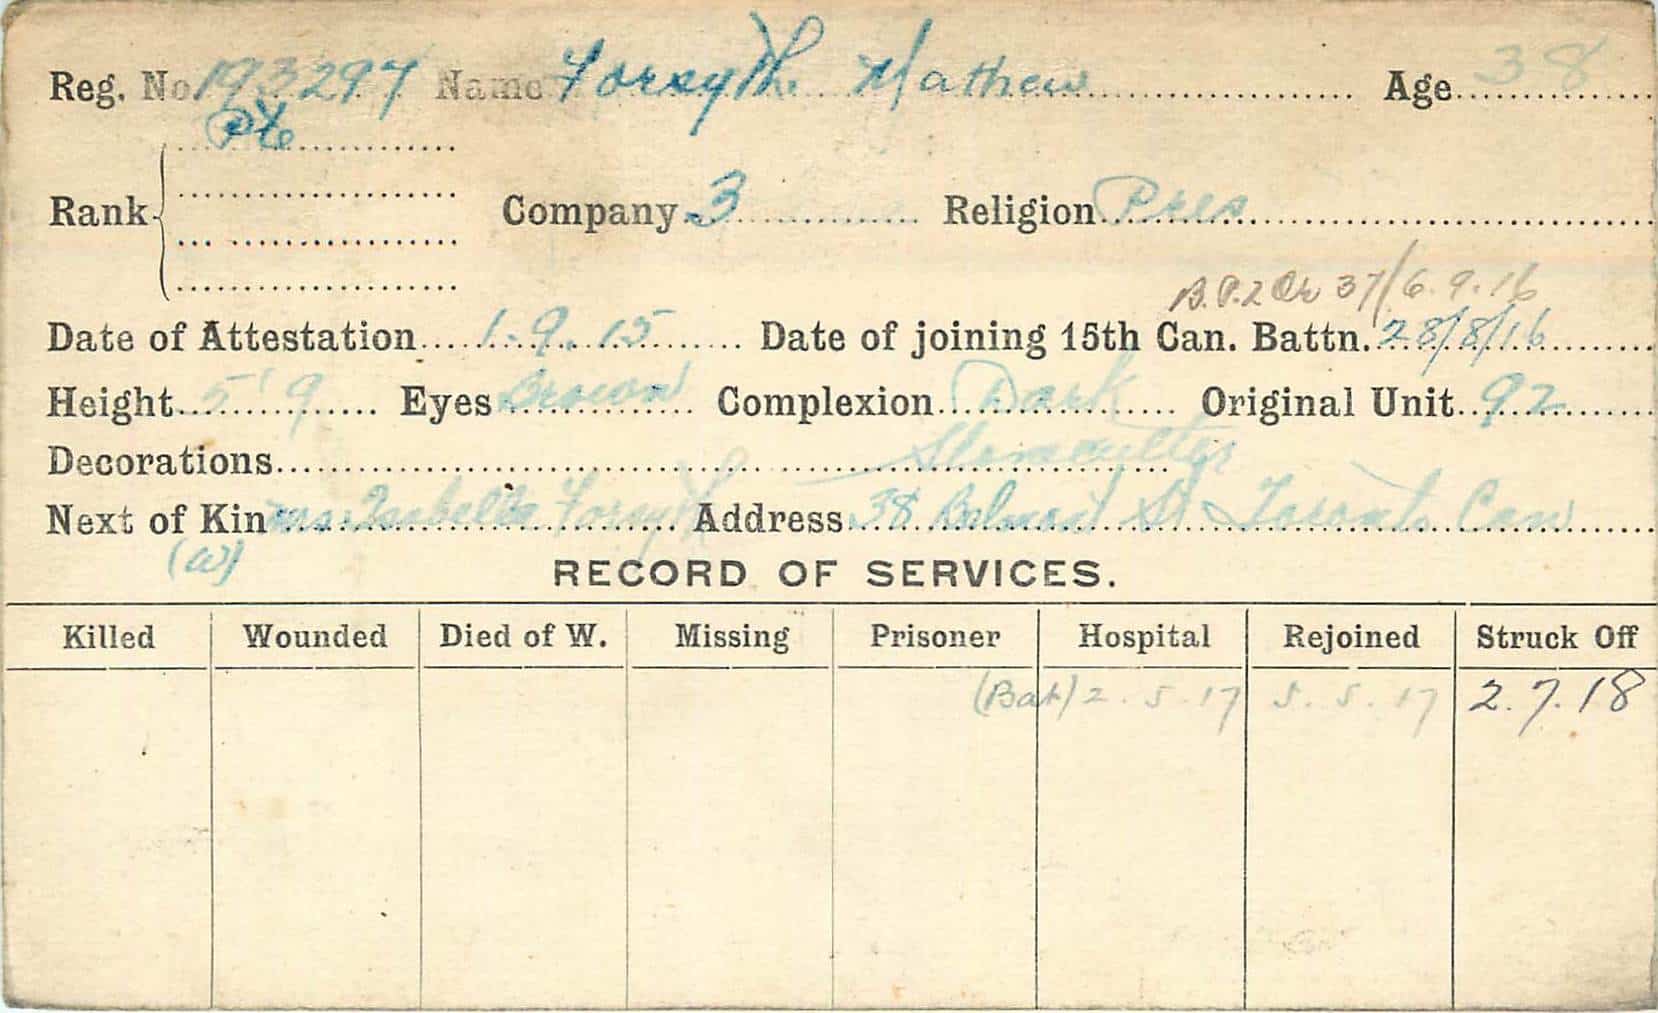 Reg. No 193297 Name Forsyth Mathew Age 38
Pte
Rank Company 3 Religion Pres
B.P.2 Or 37/6.9.16
Date of Attestation 1.9.15 Date of joining 15th Can. Battn. 28/8/16
Height 5'9 Eyes Brown Complexion Dark Original Unit 92
Decorations Stonecutter
Next of Kin Mrs. Isabella Forsyth Address 38 Belmont St Toronto Can
(W)
RECORD OF SERVICES.
Killed Wounded Died of W. Missing Prisoner Hospital Rejoined Struck Off
(Bat) 2.5.17 5.5.17 2.7.18